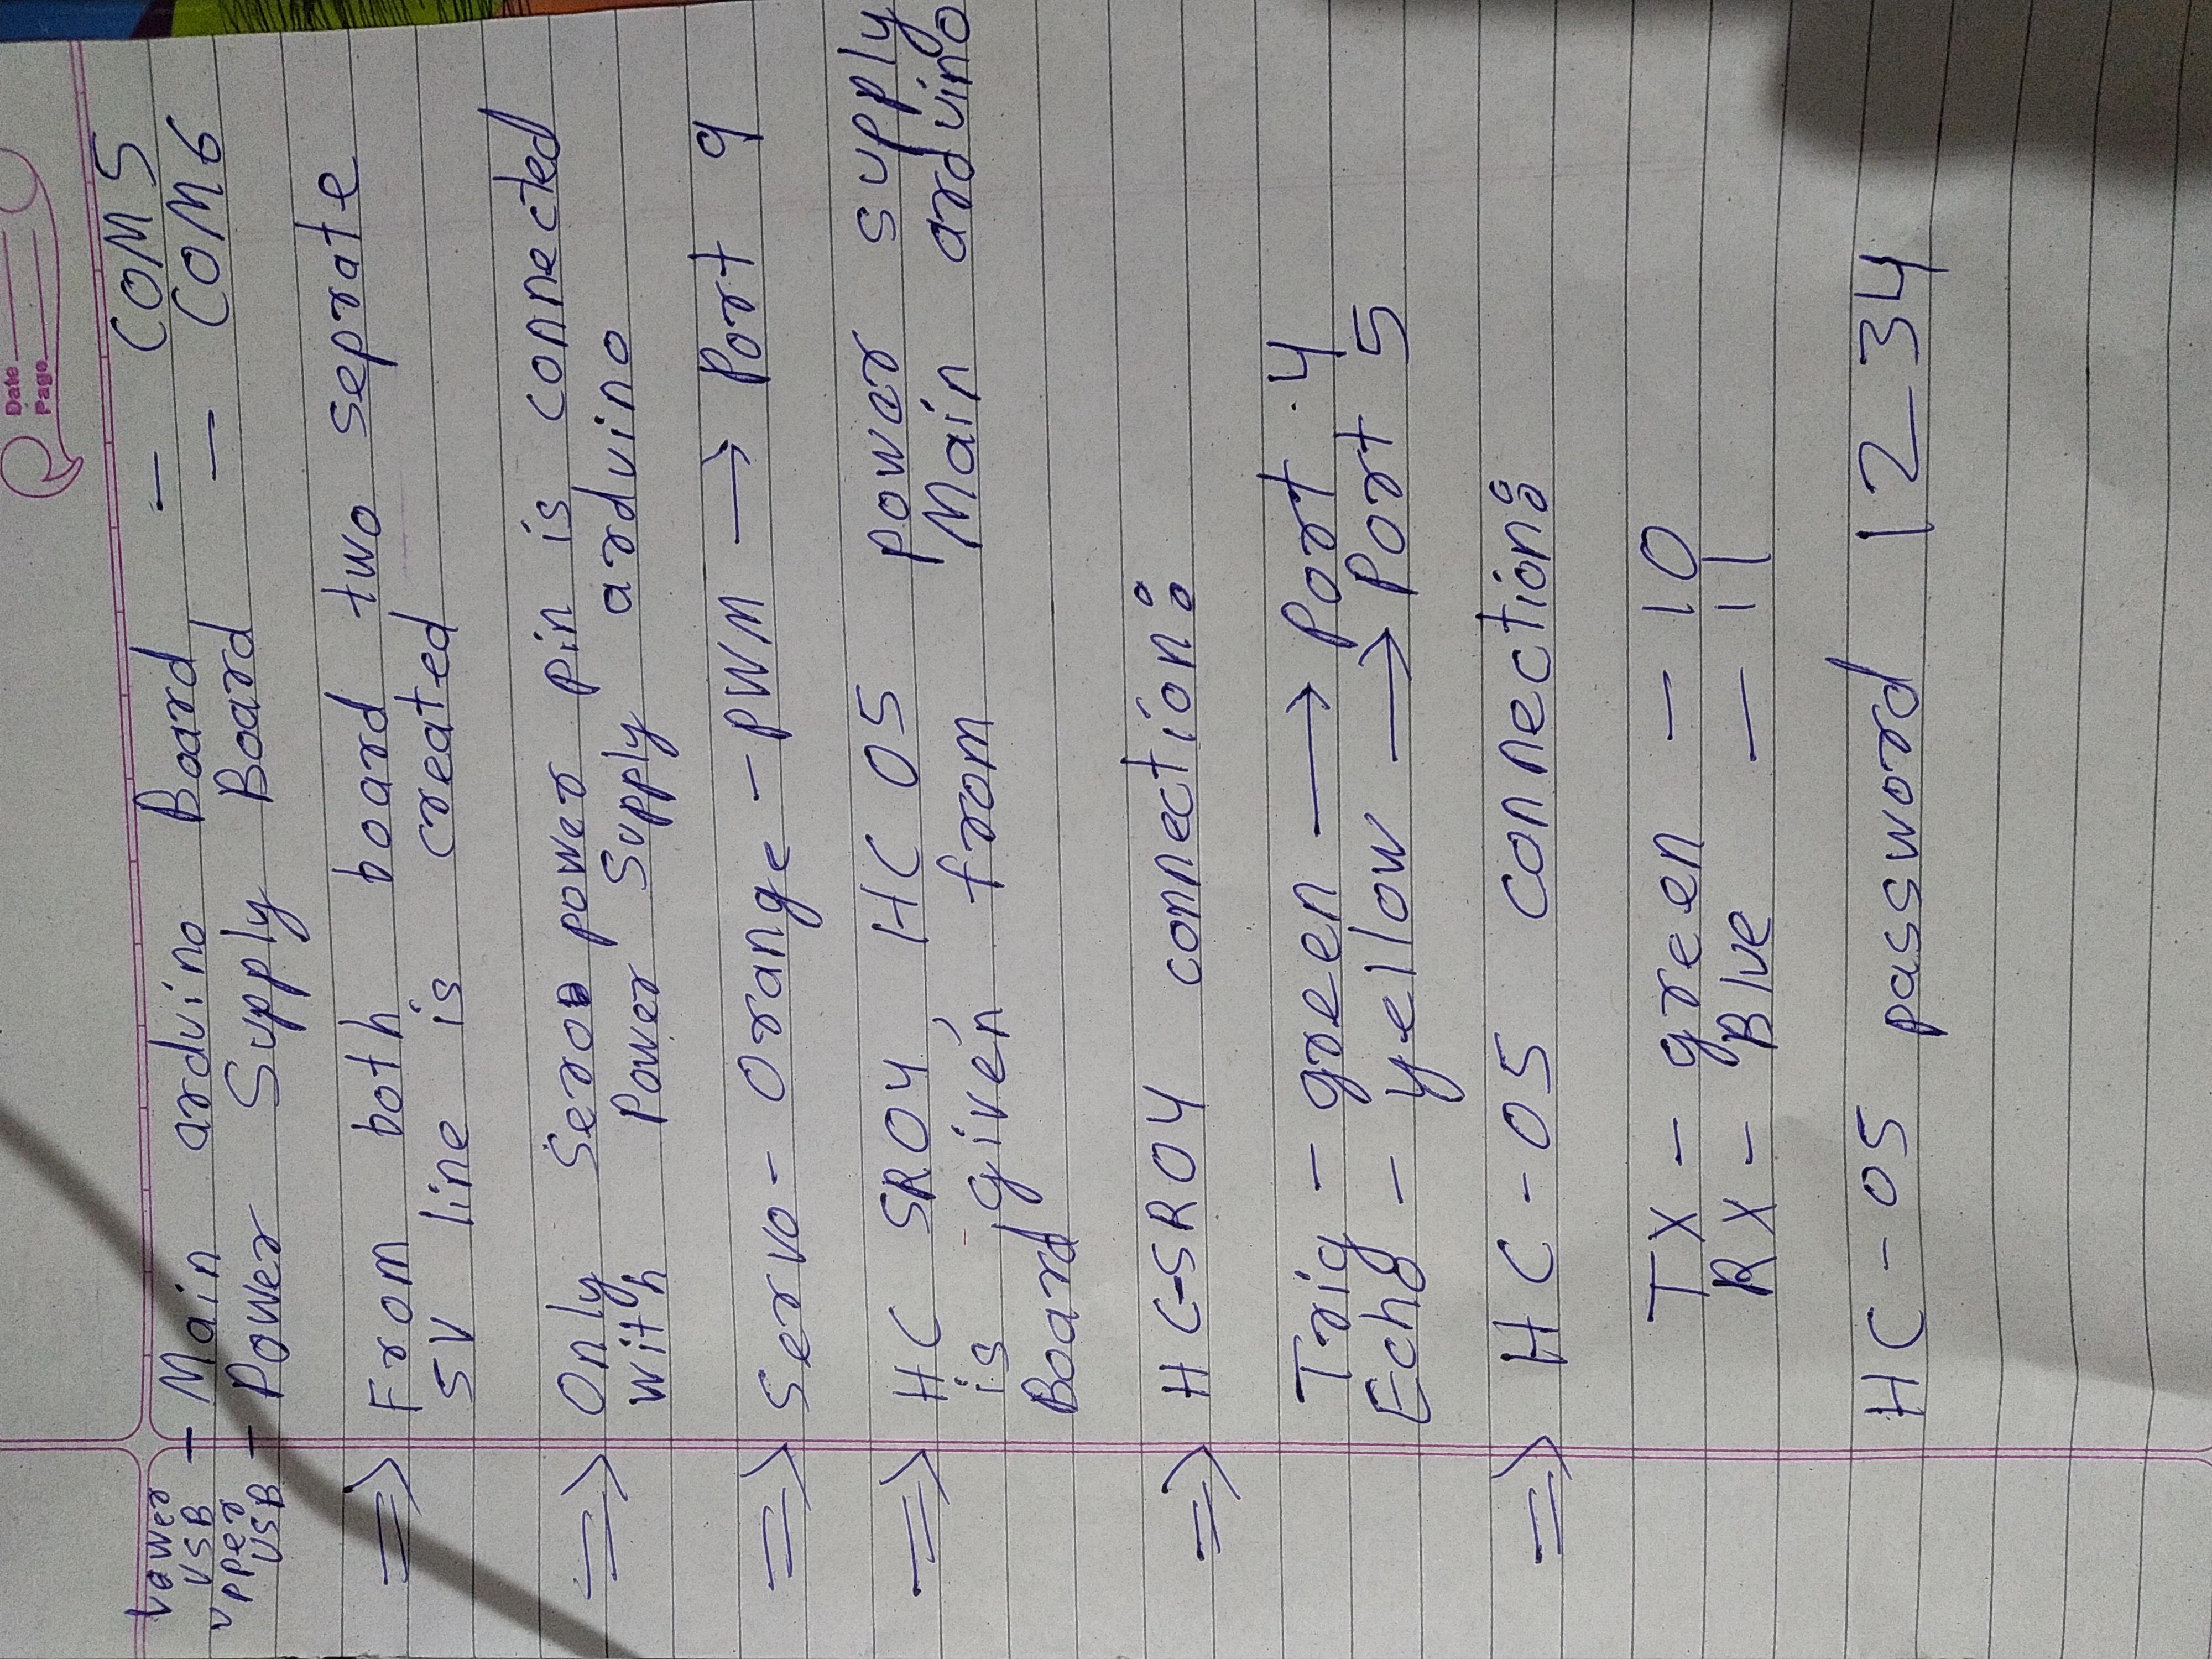 Date
Page
Lower
USB - Main arduino Board - COM5
Upper
USB - Power Supply Board - COM6
=> From both board two seprate
5V line is created
=> Only Servo power pin is connected
with Power Supply arduino
=> Servo - Orange - PWM → Port 9
=> HC SR04, HC 05 power supply
is given from Main arduino
Board
=> HC-SR04 connection:
Trig - green → Port 4
Echo - yellow → Port 5
=> HC-05 connection:
TX - green - 10
RX - Blue - 11
HC-05 password 1234